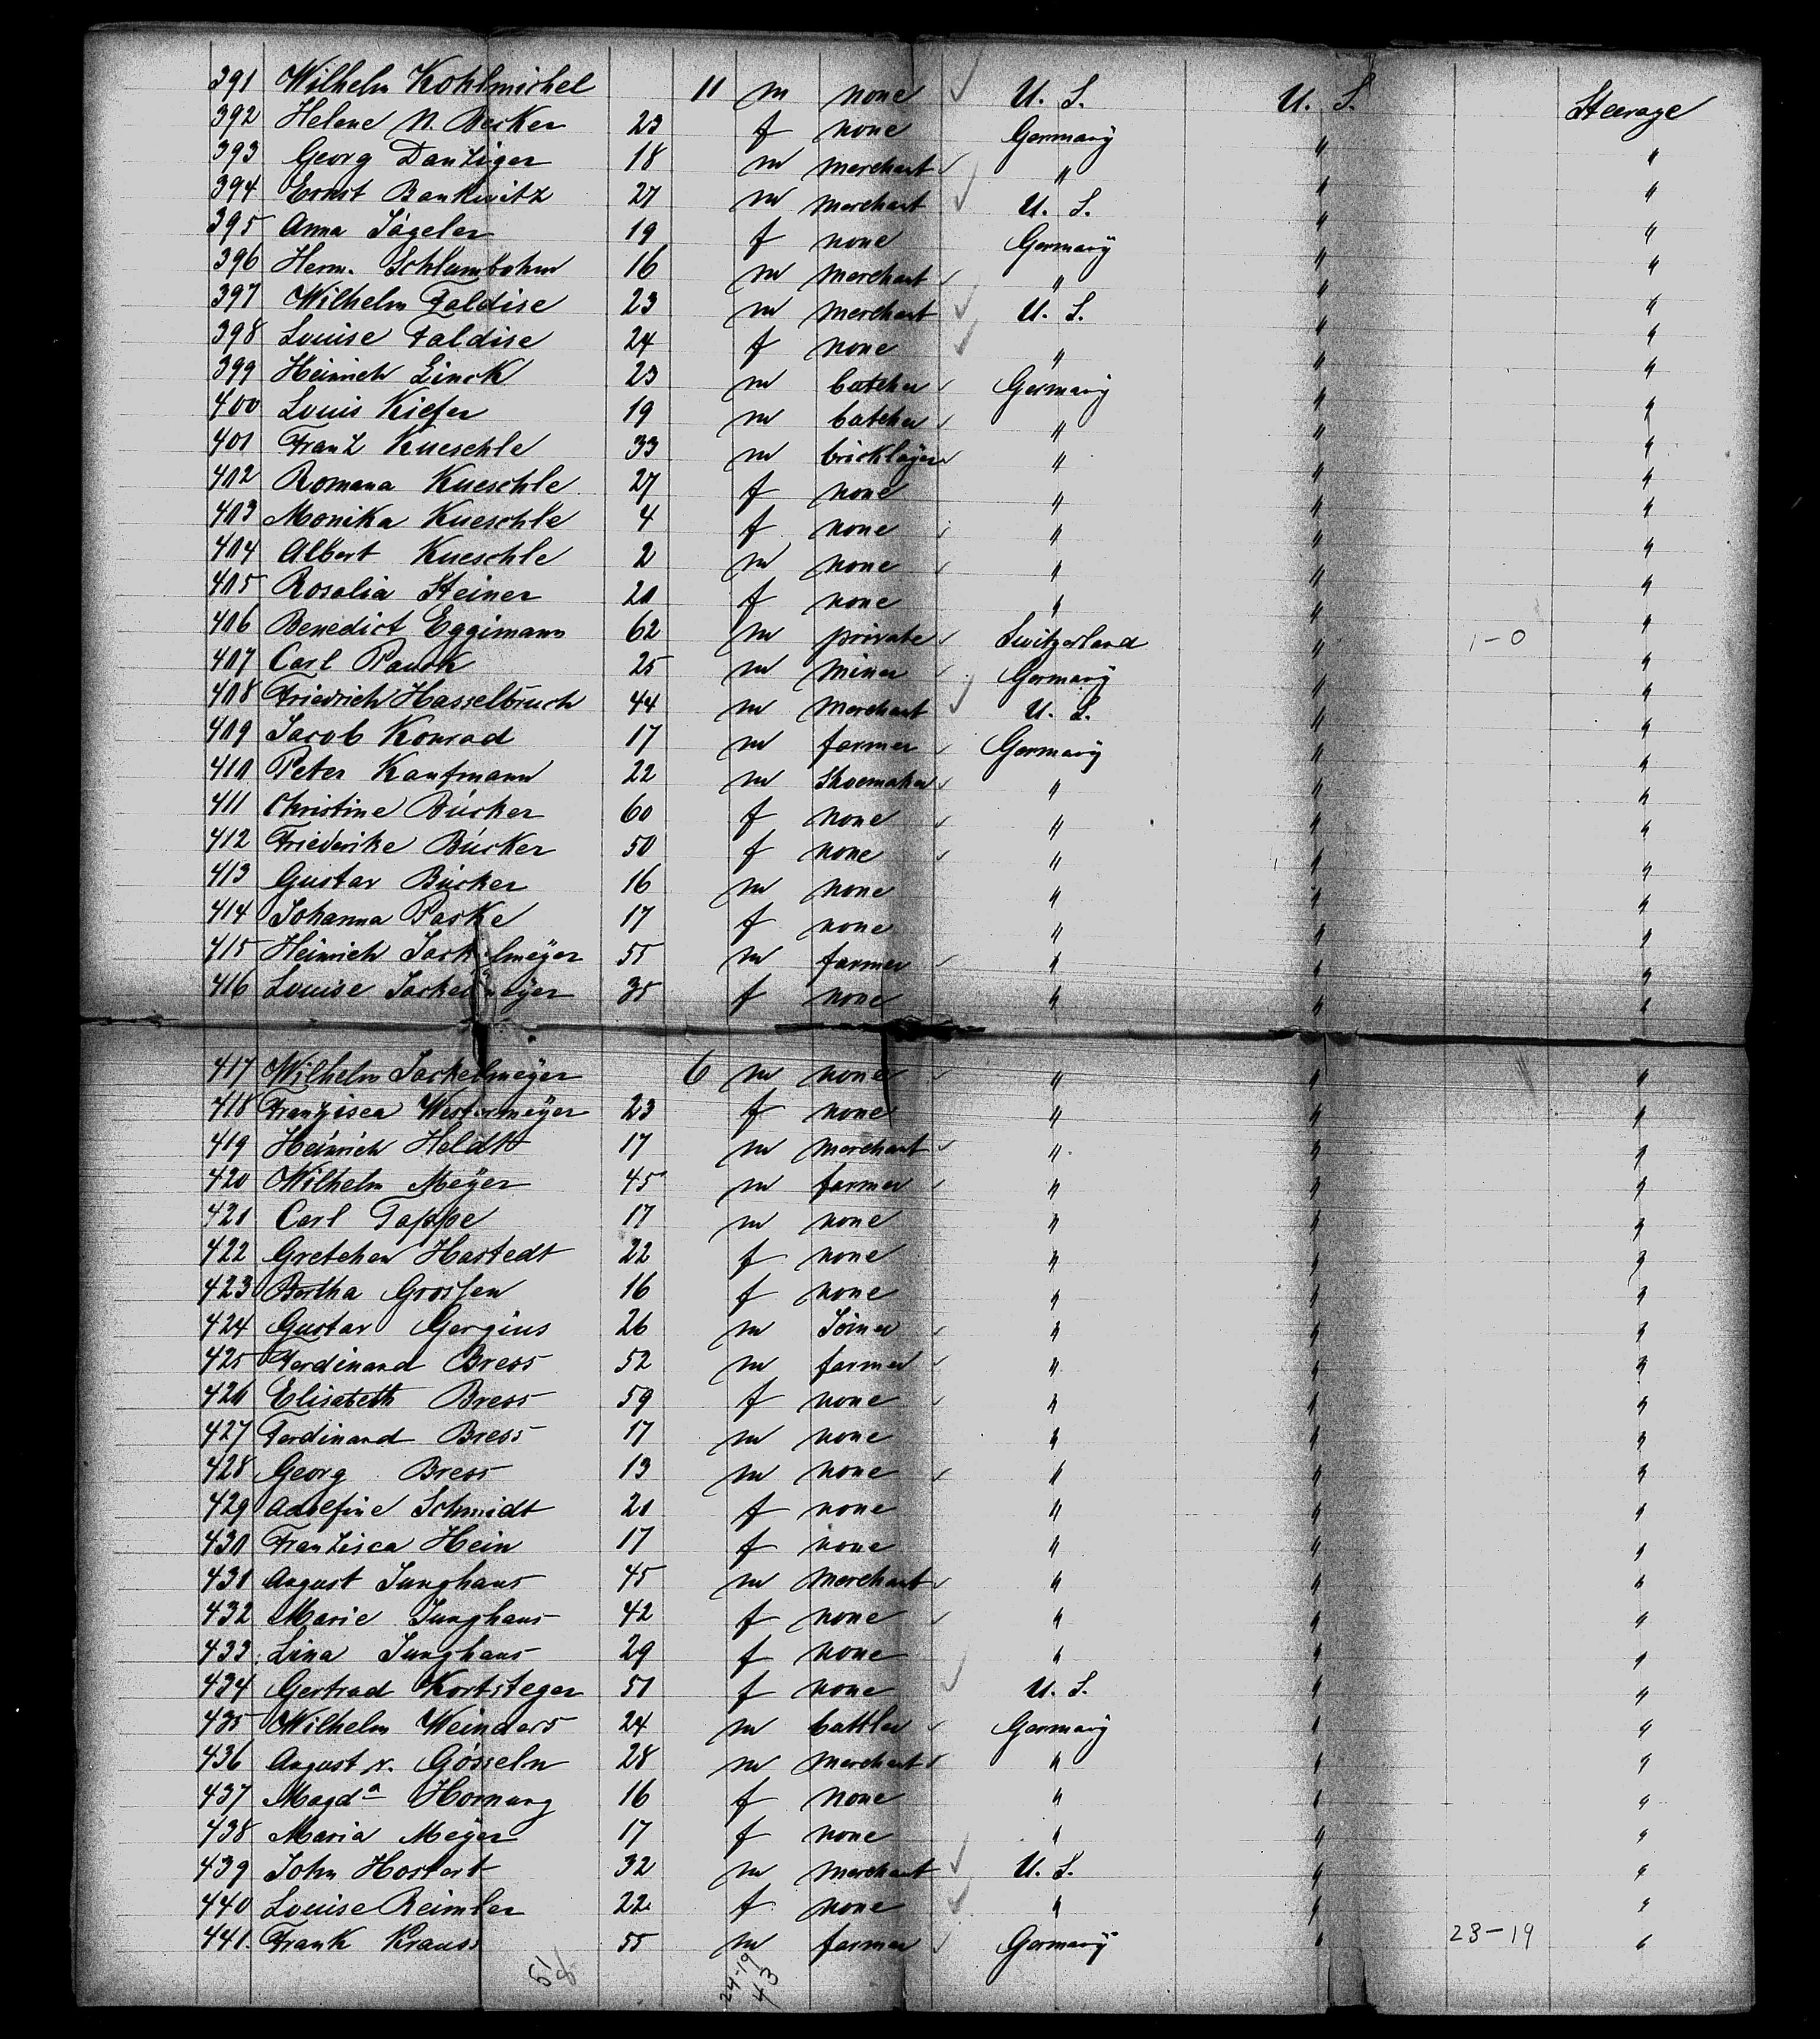 391 Wilhelm Kohlmichel 11 m none U. S. U. S. Steerage
392 Helene M. Becker 23 f none Germany " "
393 Georg Danziger 18 m merchant " " "
394 Ernst Bankwitz 27 m merchant U. S. " "
395 Anna Jägeler 19 f none Germany " "
396 Herm. Schlumbohm 16 m merchant " " "
397 Wilhelm Faldise 23 m merchant U. S. " "
398 Louise Faldise 24 f none " " "
399 Heinrich Linck 23 m butcher Germany " "
400 Louis Kiefer 19 m butcher " " "
401 Franz Kueschle 33 m bricklayer " " "
402 Romana Kueschle 27 f none " " "
403 Monika Kueschle 4 f none " " "
404 Albert Kueschle 2 m none " " "
405 Rosalia Steiner 20 f none " " "
406 Benedict Eggimann 62 m private Switzerland " 1-0 "
407 Carl Pauck 25 m miner Germany " "
408 Friedrich Hasselbruch 44 m merchant U. S. " "
409 Jacob Konrad 17 m farmer Germany " "
410 Peter Kaufmann 22 m Shoemaker " " "
411 Christine Bücker 60 f none " " "
412 Friederike Bücker 50 f none " " "
413 Gustav Bücker 16 m none " " "
414 Johanna Paske 17 f none " " "
415 Heinrich Jackelmeyer 55 m farmer " " "
416 Louise Jackelmeyer 35 f none " " "
417 Wilhelm Jackelmeyer 6 m none " " "
418 Franzisca Westermeyer 23 f none " " "
419 Heinrich Heldt 17 m merchant " " "
420 Wilhelm Meyer 45 m farmer " " "
421 Carl Tappe 17 m none " " "
422 Gretchen Hastedt 22 f none " " "
423 Bertha Grossen 16 f none " " "
424 Gustav Gergius 26 m Joiner " " "
425 Ferdinand Bress 52 m farmer " " "
426 Elisabeth Bress 59 f none " " "
427 Ferdinand Bress 17 m none " " "
428 Georg Bress 13 m none " " "
429 Adolfine Schmidt 20 f none " " "
430 Franzisca Hein 17 f none " " "
431 August Junghans 45 m merchant " " "
432 Marie Junghans 42 f none " " "
433 Lina Junghans 29 f none " " "
434 Gertrad Kortsteger 51 f none U. S. " "
435 Wilhelm Weinders 24 m Germany " "
436 August v. Gösseln 28 m merchant " " "
437 Magda Hornung 16 f none " " "
438 Maria Meyer 17 f none " " "
439 John Hostert 32 m merchant U. S. " "
440 Louise Reimler 22 f none " " "
441 Frank Krauss 55 m farmer Germany " 23-19 "
51 24-19
43